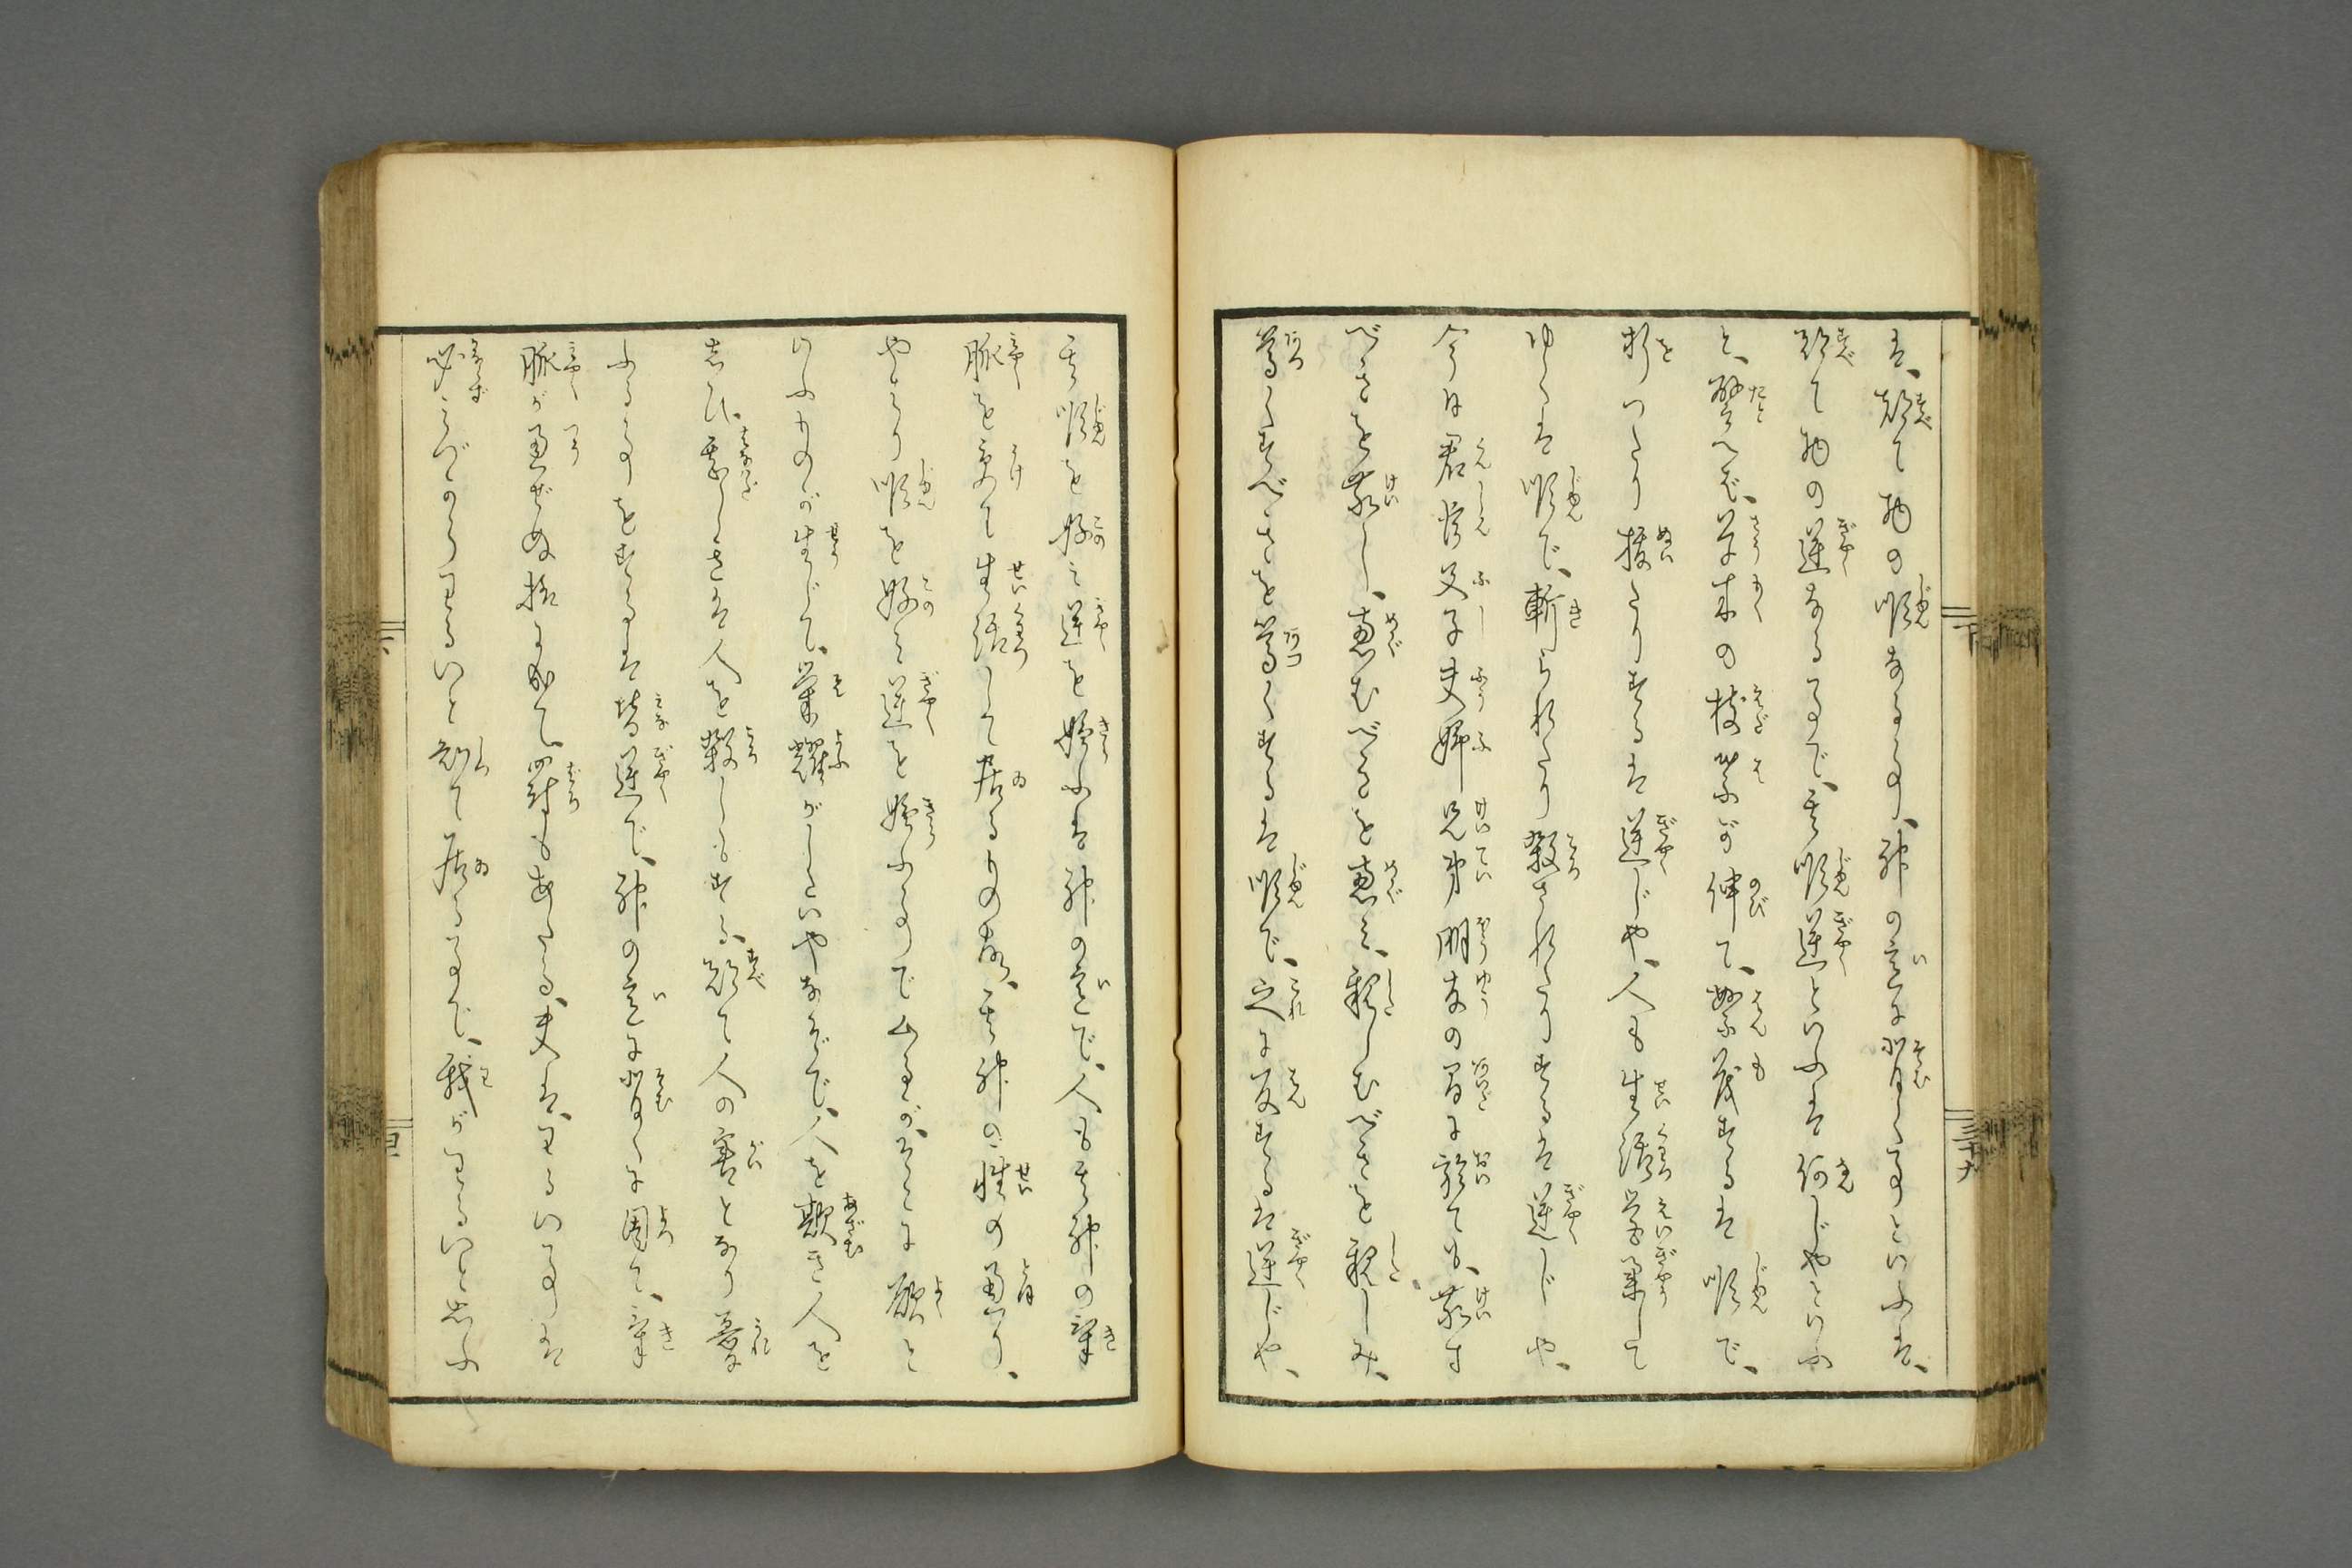 は、都て物の順なる事、神の意に背く事といふは、
都て物の逆なる事で、其順逆といふは何じやといふ
と、譬へば、草木の枝葉が伸て、繁茂するは順で、
折つたり抜たりするは逆じや、人も生活営業して
ゆくは順で、斬られたり殺されたりするは逆じや、
今日君臣父子夫婦兄弟朋友の間に於ても、敬す
べきを敬し、恵むべきを恵み、親しむべきを親しみ、
篤くすべきを篤くするは順で、之に反するは逆じや、
其順を好み逆を嫌ふは神の意で、人も其神の気
脈を受て生活して居るもの故、其神の性の通り、
やはり順を好み逆を嫌ふ事で厶るが、そこに欲と
いふものが生じて、栄耀がしたいやなぞで、人を欺き人を
しひ、甚しきは人を殺しもする、都て人の害となり憂
ふる事をするは皆逆で、神の意に背くに因て、気
脈が通ぜぬ様に成て、罰もあたる、夫は、わるい事は
必みづからわるいと知て居る事で、我がわるいと思ふ